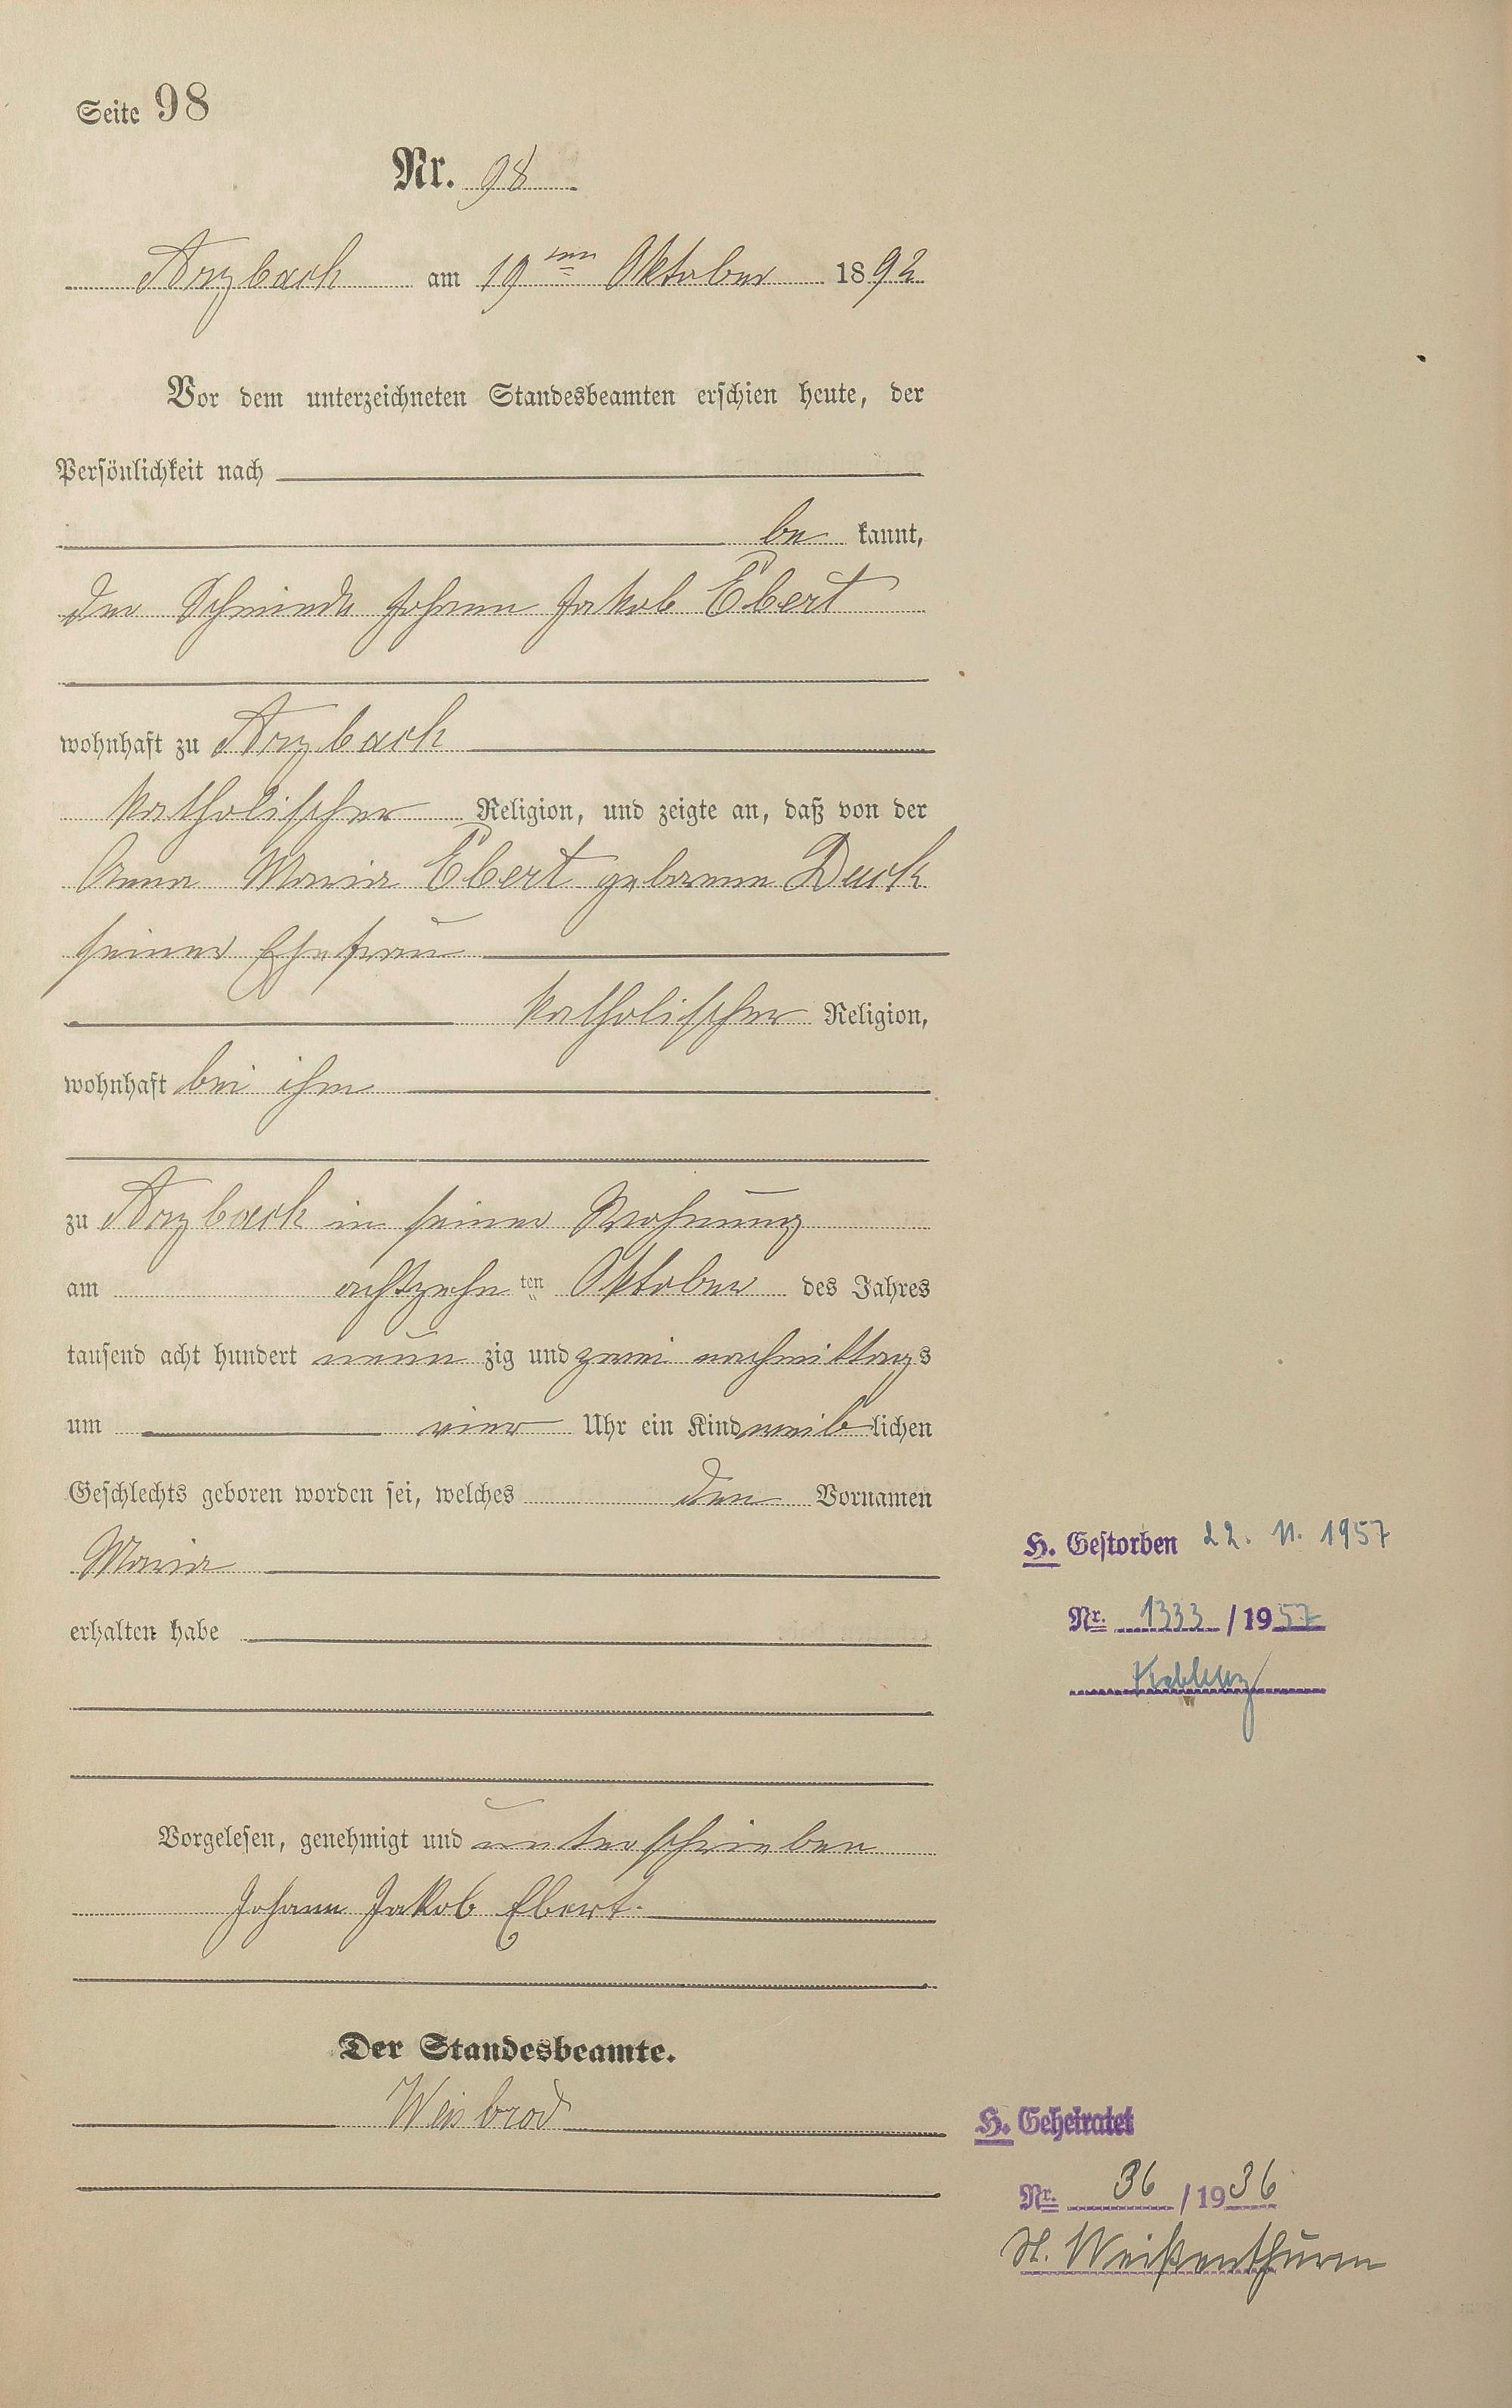 Seite 98
Nr. 98.
Arzbach am 19ten Oktober 1892
Vor dem unterzeichneten Standesbeamten erschien heute, der
Persönlichkeit nach
be kannt,
der Schmiede Johann Jakob Ebert
wohnhaft zu Arzbach
katholischer Religion, und zeigte an, daß von der
Anna Maria Ebert geborenen Duck
seiner Ehefrau
katholischer Religion,
wohnhaft bei ihm
zu Arzbach in seiner Wohnung
am achtzehn ten Oktober des Jahres
tausend acht hundert neun zig und zwei nachmittags
um vier Uhr ein Kind weiblichen
Geschlechts geboren worden sei, welches den Vornamen
Maria
erhalten habe
Vorgelesen, genehmigt und unterschrieben
Johann Jakob Ebert.
Der Standesbeamte.
Weisbrod
H. Gestorben 22. 11. 1957
Nr. 1333 / 1957
Koblenz
H. Geheiratet
Nr. 36 / 1936
St. Weißenthurm